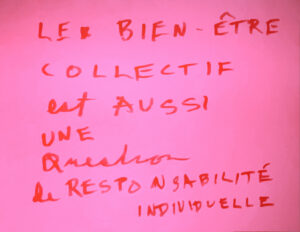 LE BIEN-ÊTRE
COLLECTIF
est AUSSI
UNE
Question
de RESPONSABILITÉ
INDIVIDUELLE